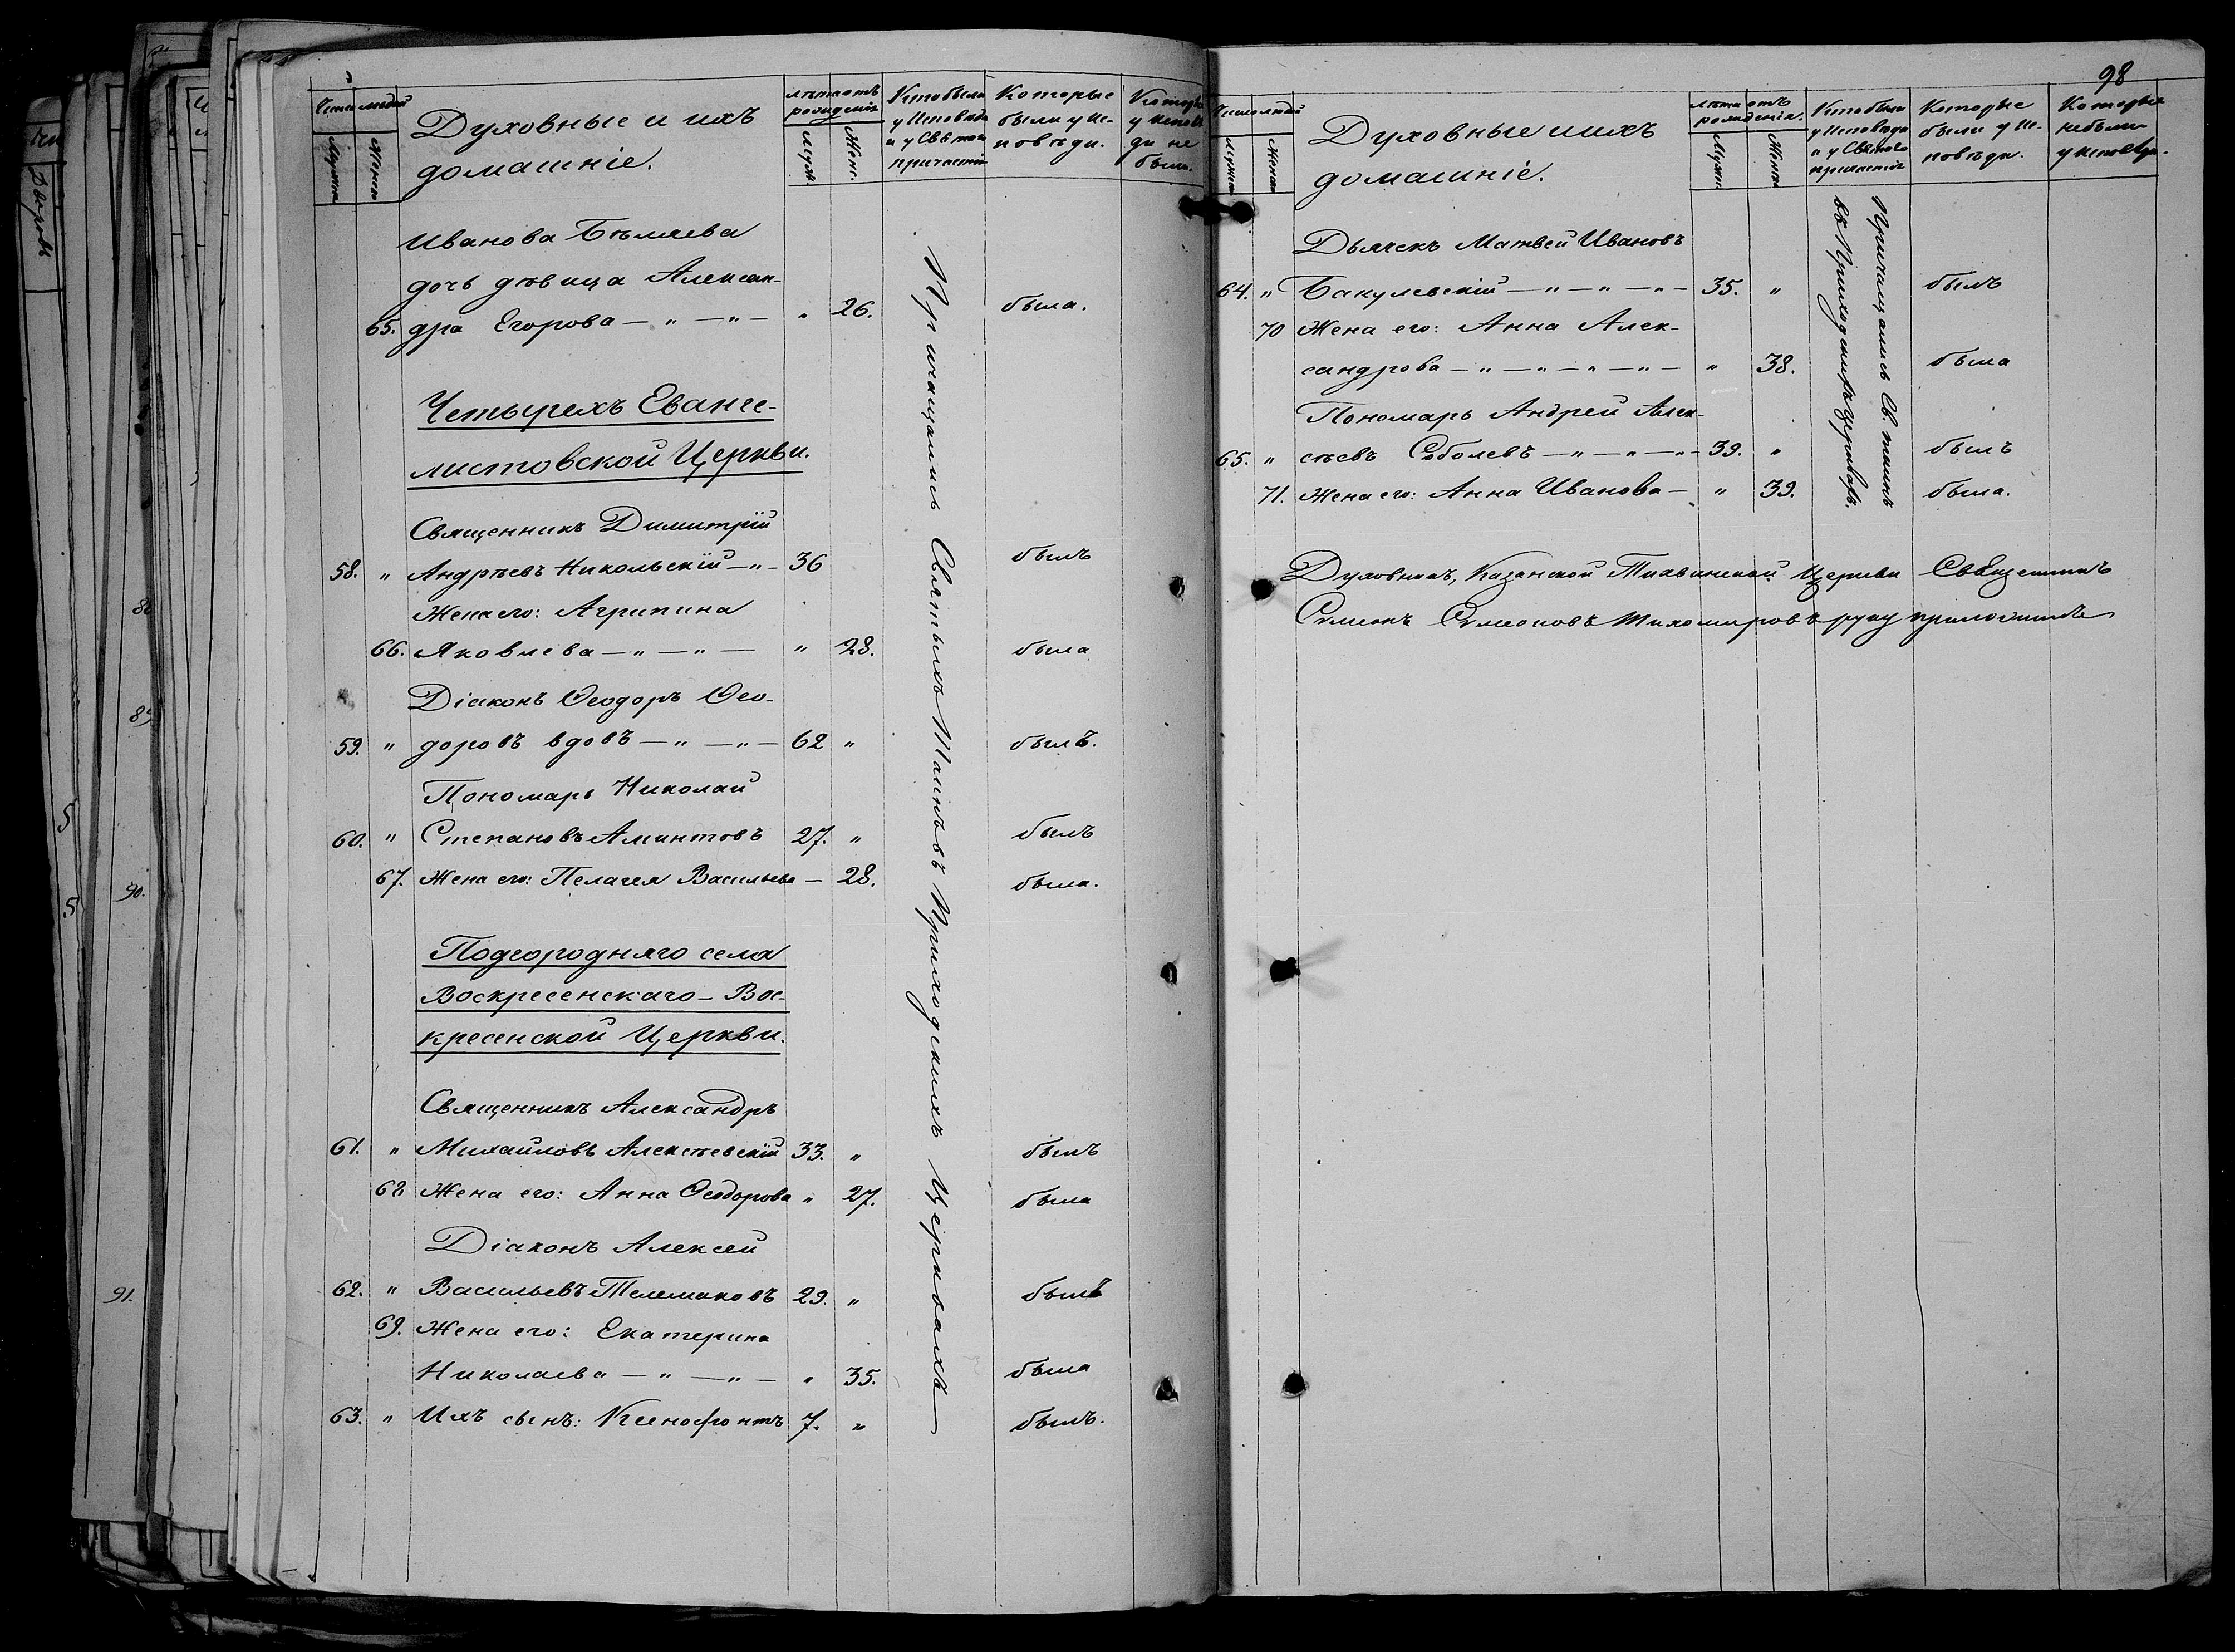 Число людей
Мужеск
Женск
Духовные и ихъ
домашніе.
лѣта отъ
рожденія
Муж.
Женс.
Кто были
у Исповѣди
и у Святаго
причастія
Которые
были у Ис-
повѣди.
Которые
у Испові
ди не
были.
Иванова Бѣляева
дочь дѣвица Алексан-
65. дра Егорова — „ — „ — „ 26. была.
Четырехъ Еванге-
листовской Церкви.
Священникъ Димитрій
58. „ Андрѣевъ Никольскій — „ — 36 былъ
Жена его: Агрипина
66. Яковлева — „ — „ — „ 28. была
Діаконъ Ѳеодоръ Ѳео-
59. „ доровъ вдовъ — „ — „ — 62 „ былъ.
Пономарь Николай
60. „ Степановъ Аминтовъ 27. „ былъ
67. Жена его: Пелагея Васильева — 28. была.
Подгородняго села
Воскресенскаго – Вос-
кресенской Церкви.
Священникъ Александръ
61. „ Михайловъ Алексѣевскій 33. „ былъ
68 Жена его: Анна Ѳеодорова „ 27. была
Діаконъ Алексей
62. „ Васильевъ Телемаковъ 29. „ былъ
69. Жена его: Екатерина
Николаева — „ — „ — „ 35. была
63. „ Ихъ сынъ: Ксенофонтъ 7. „ былъ.
Причащались Святыхъ Таинъ въ Приходскихъ Церквахъ
98
Число людей
Мужеск
Женск
Духовные и ихъ
домашніе.
лѣта отъ
рожденія.
Мужс
Женск
Кто были
у Исповѣди
и у Святаго
причастія
Которые
были у Ис-
повѣди.
Которые
небыли
у исповѣди.
Дьячекъ Матвей Ивановъ
64. „ Бакулевскій — „ — „ — „ — 35. „ былъ
70 Жена его: Анна Алек-
сандрова — „ — „ — „ — „ — „ 38. была
Пономарь Андрей Алек-
65. „ сѣевъ Соболевъ — „ — „ — „ — 39. „ былъ
71. Жена его: Анна Иванова — „ 39. была.
Причащались Св. таинъ
въ Приходскихъ церквахъ.
Духовникъ, Казанской Церкви Священникъ
Симеонъ Симеоновъ Тихомировъ руку приложилъ